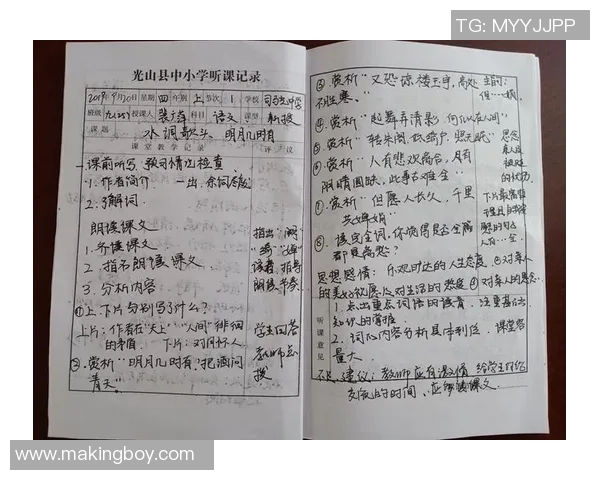 TG: MYYJJPP
光山县中小学听课记录
2019年9月20日 星期 四 年级 上 节次 1 学校 司马中学
班级 九(25) 授课人 裴蕴 科目 语文 课型 新授
课题 水调歌头·明月几时有
课堂教学记录 评议
一课前听写、预习情况检查
1. 作者简介 一出
2. 了解词.
朗读课文
1. 齐读课文 指出
2. 指名朗读课文 读音, 指导
3. 分析内容 朗读节奏.
①上.下片分别写了什么?
上片: 作者在"天上""人间"徘徊 学生回答
的矛盾. 下片: 对月怀人 教师点
②. 赏析"明月几时有, 把酒问 拨
青天".
③. 赏析"又恐琼楼玉宇, 高处
不胜寒."
④. 赏析"起舞弄清影, 何似在人间"
⑤. 赏析"转朱阁, 低绮户, 照无眠" 思念
⑥. 赏析"人有悲欢离合, 月有 亲人
阴晴圆缺, 此事古难全"
⑦. 赏析"但愿人长久, 千里
共婵娟" 下片最富哲
⑧. 读完全词, 你觉得是否全篇
都是离愁? 人有…全.
思想感情: 乐观旷达的人生态度 ②对亲人
的美好祝愿 ③对生活的热爱 ④对亲人的思念.
听课意见
1. 点出重点词语的读音 注重基础
知识的掌握
2. 词的内容分析具体到位. 课堂容
量大.
建议: 教师应有激情 给学生
交流的时间, 应 读课文.
www.makingboy.com
www.makingboy.com